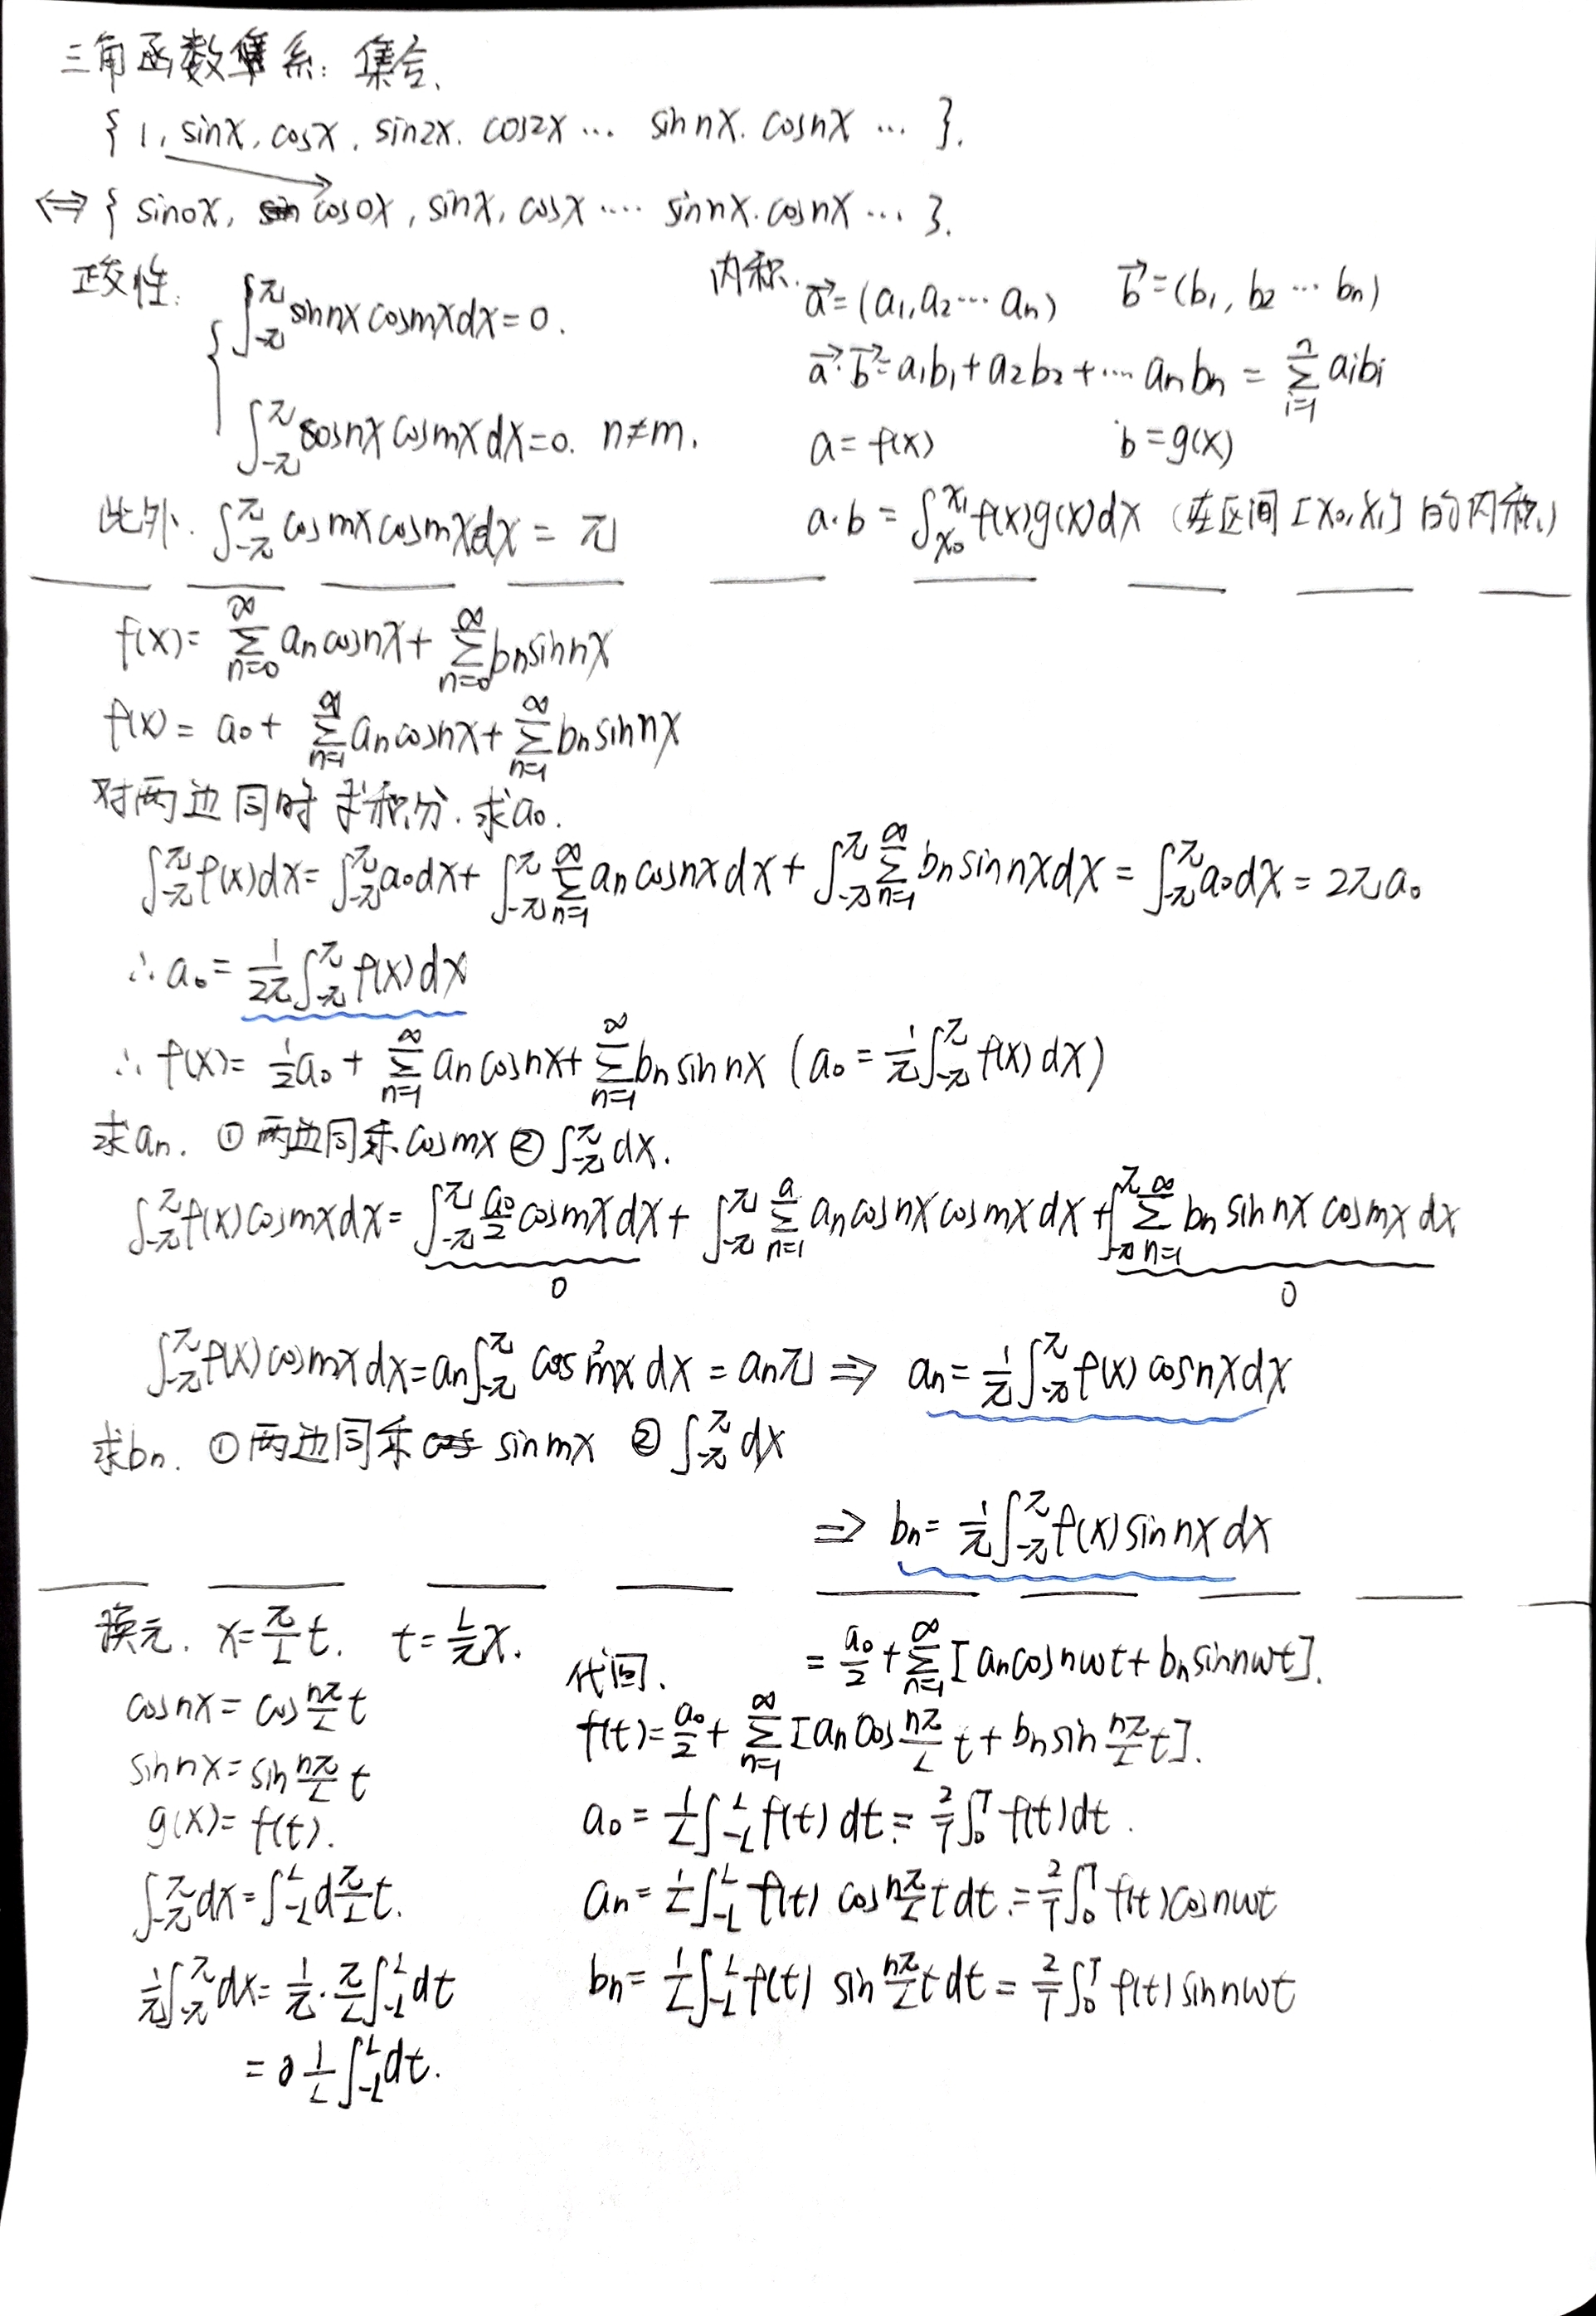 三角函数系: 集合.
{ 1, sinx, cosx, sin2x. cos2x … sin nx. cosnx … }.
⇔ { sin0x, cos0x, sinx, cosx …. sinnx. cosnx … }.
正交性: ∫_{-π}^{π} sin nx cosmx dx = 0.
∫_{-π}^{π} cosnx cosmx dx = 0. n≠m.
此外. ∫_{-π}^{π} cosmx cosmx dx = π
内积. a⃗ = (a₁, a₂ … aₙ) b⃗ = (b₁, b₂ … bₙ)
a⃗·b⃗ = a₁b₁ + a₂b₂ + … aₙbₙ = Σ_{i=1}^{n} aᵢbᵢ
a = f(x) b = g(x)
a·b = ∫_{x₀}^{x₁} f(x)g(x)dx (在区间 [x₀, x₁] 的内积.)
f(x) = Σ_{n=0}^{∞} aₙcosnx + Σ_{n=0}^{∞} bₙsinnx
f(x) = a₀ + Σ_{n=1}^{∞} aₙcosnx + Σ_{n=1}^{∞} bₙsin nx
对两边同时求积分. 求a₀.
∫_{-π}^{π} f(x)dx = ∫_{-π}^{π} a₀dx + ∫_{-π}^{π} Σ_{n=1}^{∞} aₙcosnx dx + ∫_{-π}^{π} Σ_{n=1}^{∞} bₙsin nx dx = ∫_{-π}^{π} a₀dx = 2πa₀
∴ a₀ = 1/2π ∫_{-π}^{π} f(x)dx
∴ f(x) = ½a₀ + Σ_{n=1}^{∞} aₙcosnx + Σ_{n=1}^{∞} bₙsin nx (a₀ = 1/π ∫_{-π}^{π} f(x)dx)
求aₙ. ① 两边同乘 cosmx ② ∫_{-π}^{π} dx.
∫_{-π}^{π} f(x)cosmx dx = ∫_{-π}^{π} a₀/2 cosmx dx + ∫_{-π}^{π} Σ_{n=1} aₙcosnx cosmx dx + ∫_{-π}^{π} Σ_{n=1}^{∞} bₙ sin nx cosmx dx
0 0
∫_{-π}^{π} f(x)cosmx dx = aₙ∫_{-π}^{π} cos²mx dx = aₙπ ⇒ aₙ = 1/π ∫_{-π}^{π} f(x) cosnx dx
求bₙ. ① 两边同乘 sinmx ② ∫_{-π}^{π} dx
⇒ bₙ = 1/π ∫_{-π}^{π} f(x) sin nx dx
换元. x = π/L t. t = L/π x.
cosnx = cos nπ/L t
sinnx = sin nπ/L t
g(x) = f(t).
∫_{-π}^{π} dx = ∫_{-L}^{L} d π/L t.
1/π ∫_{-π}^{π} dx = 1/π · π/L ∫_{-L}^{L} dt
= 1/L ∫_{-L}^{L} dt.
代回. = a₀/2 + Σ_{n=1}^{∞} [aₙcosnωt + bₙsinnωt].
f(t) = a₀/2 + Σ_{n=1}^{∞} [aₙcos nπ/L t + bₙsin nπ/L t].
a₀ = 1/L ∫_{-L}^{L} f(t) dt = 2/T ∫_{0}^{T} f(t)dt.
aₙ = 1/L ∫_{-L}^{L} f(t) cos nπ/L t dt = 2/T ∫_{0}^{T} f(t)cosnωt
bₙ = 1/L ∫_{-L}^{L} f(t) sin nπ/L t dt = 2/T ∫_{0}^{T} f(t) sinnωt